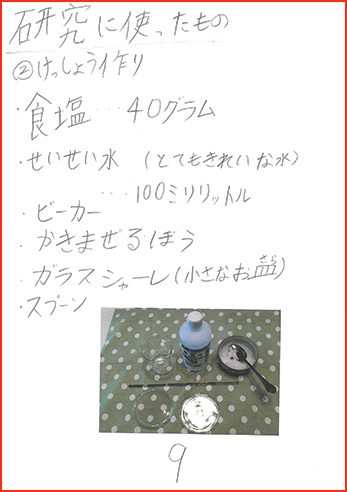 研究に使ったもの
②けっしょう作り
・食塩…40グラム
・せいせい水（とてもきれいな水）
…100ミリリットル
・ビーカー
・かきまぜるぼう
・ガラスシャーレ（小さなお皿）
さら
・スプーン
9